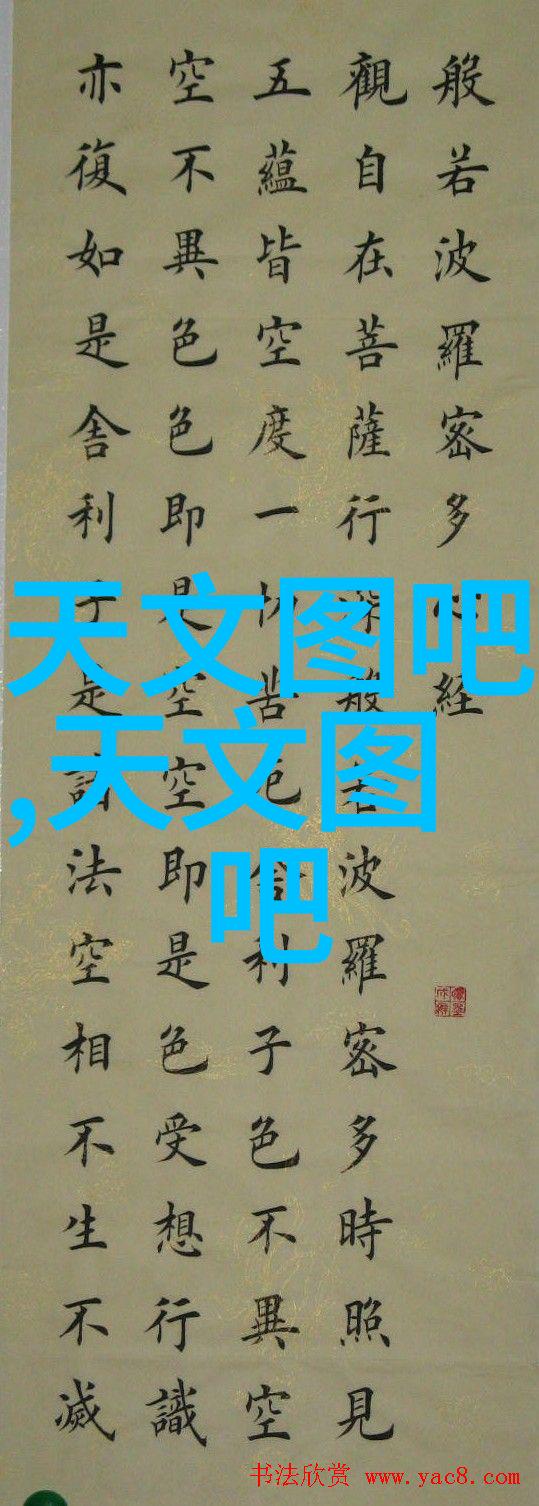 般若波羅密多心経
觀自在菩薩行深般若波羅密多時照見
五蘊皆空度一切苦厄舍利子色不異空
空不異色色即是空空即是色受想行識
亦復如是舍利子是諸法空相不生不滅
天文图吧
,天文图
吧
书法欣赏 www.yac8.com